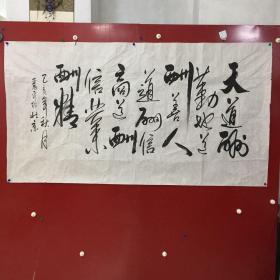 天道酬
勤地道
酬善人
道酬信
商道酬
信業
酬精
亥年秋月
北京